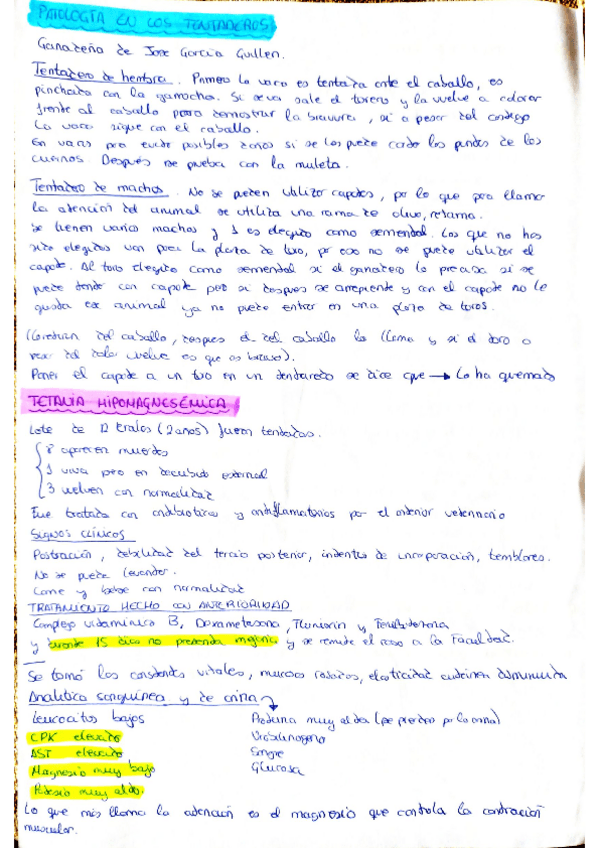 PATOLOGÍA EN LOS TENTADEROS
Ganadería de Jose García Guillen.
Tentadero de hembra. Primero la vaca es tentada ante el caballo, es
pinchada con la garrocha. Si se va sale el torero y la vuelve a colocar
frente al caballo para demostrar la bravura, si a pesar del castigo
la vaca sigue con el caballo.
En vacas para evitar posibles daños si se les puede cortar las puntas de los
cuernos. Después se prueba con la muleta.
Tentadero de machos. No se pueden utilizar capotes, por lo que para llamar
la atención del animal se utiliza una rama de olivo, retama.
Se tienen varios machos y 1 es elegido como semental. Los que no han
sido elegidos van para la plaza de toros, por eso no se puede utilizar el
capote. Al toro elegido como semental si el ganadero lo precisa si se
puede tentar con capote pero si despues se arrepiente y con el capote no le
gusta ese animal ya no puede entrar en una plaza de toros.
del caballo, despues el del caballo lo llama y si el toro o
vaca vuelve es que es bravo).
Poner el capote a un toro en un tentadero se dice que → Lo ha quemado
TETANIA HIPOMAGNESÉMICA
Lote de 12 erales (2 años) fueron tentados.
8 aparecen muertos
1 viva pero en decubito esternal
3 vuelven con normalidad
Fue tratada con antibioticos y antiinflamatorios por el anterior veterinario
SIGNOS CLÍNICOS
Postración, debilidad del tercio posterior, intentos de incorporación, temblores.
No se puede levantar.
Come y bebe con normalidad
TRATAMIENTO HECHO CON ANTERIORIDAD
Complejo vitaminico B, Dexametasona, Flunixin y
y durante 15 dias no presenta mejoria y se remite el caso a la Facultad.
Se tomó las constantes vitales, mucosas rosadas, elasticidad cutánea disminuida
Analitica sanguínea y de orina
Leucocitos bajos
Proteina muy alta (se pierden por la orina)
CPK elevado
Urobilinogeno
AST elevado
Sangre
Magnesio muy bajo
Glucosa
Potasio muy alto.
Lo que más llama la atención es el magnesio que controla la contracción
muscular.